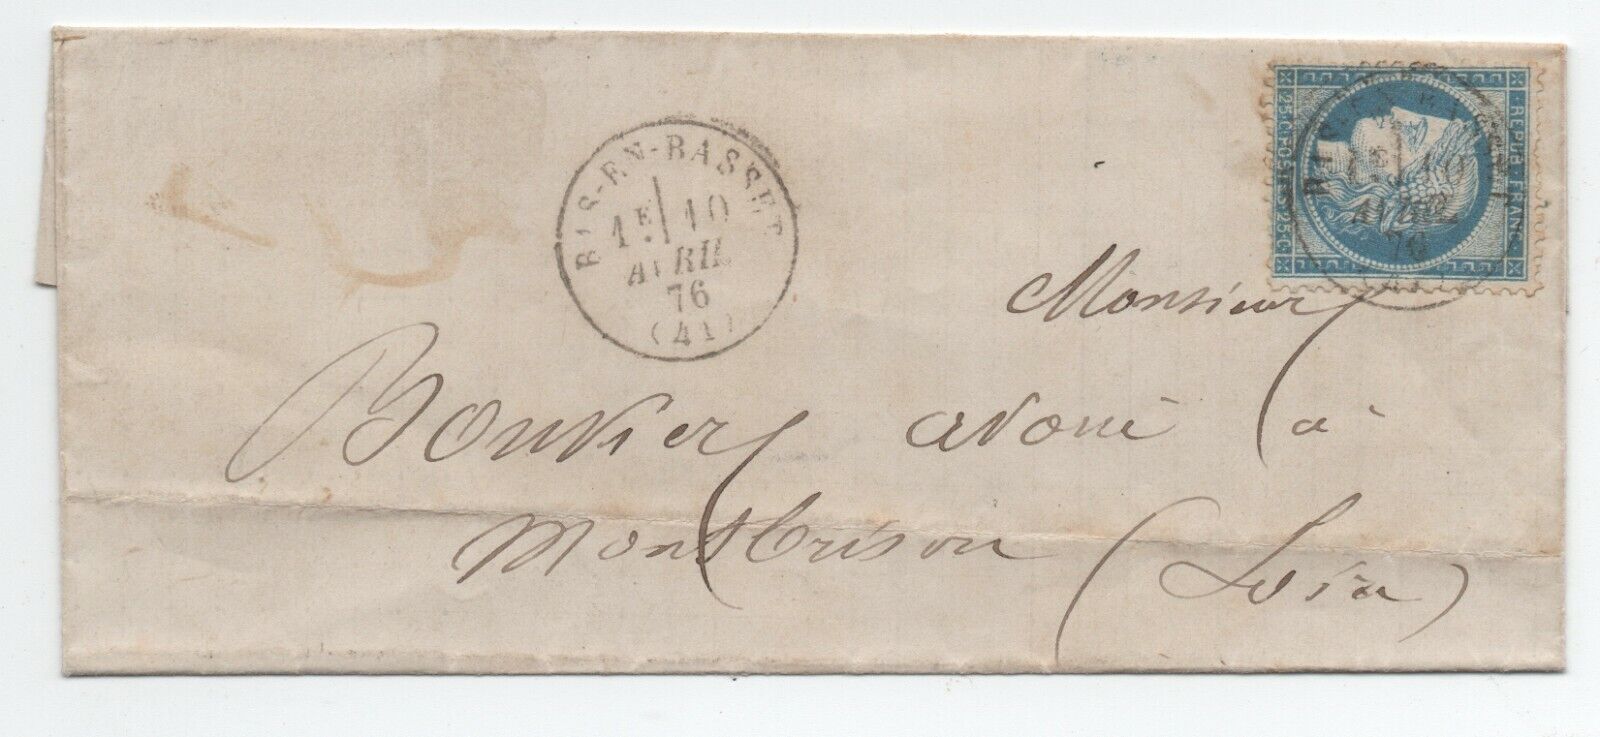 BAS-EN-BASSET
1E 10
AVRIL
76
(41)
REPUB FRANC
25 C POSTES 25 C
BAS-EN-BASSET
1E 10
AVRIL
76
Monsieur
Bouvier avoué à
Montbrison (Loire)